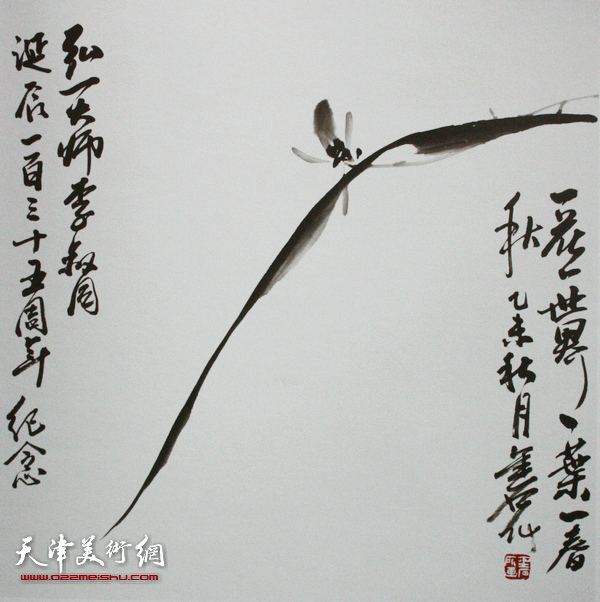 一花一世界一葉一春
秋 乙未秋月
弘一大师李叔同
诞辰一百三十五周年 纪念
天津美術網
www.022meishu.com